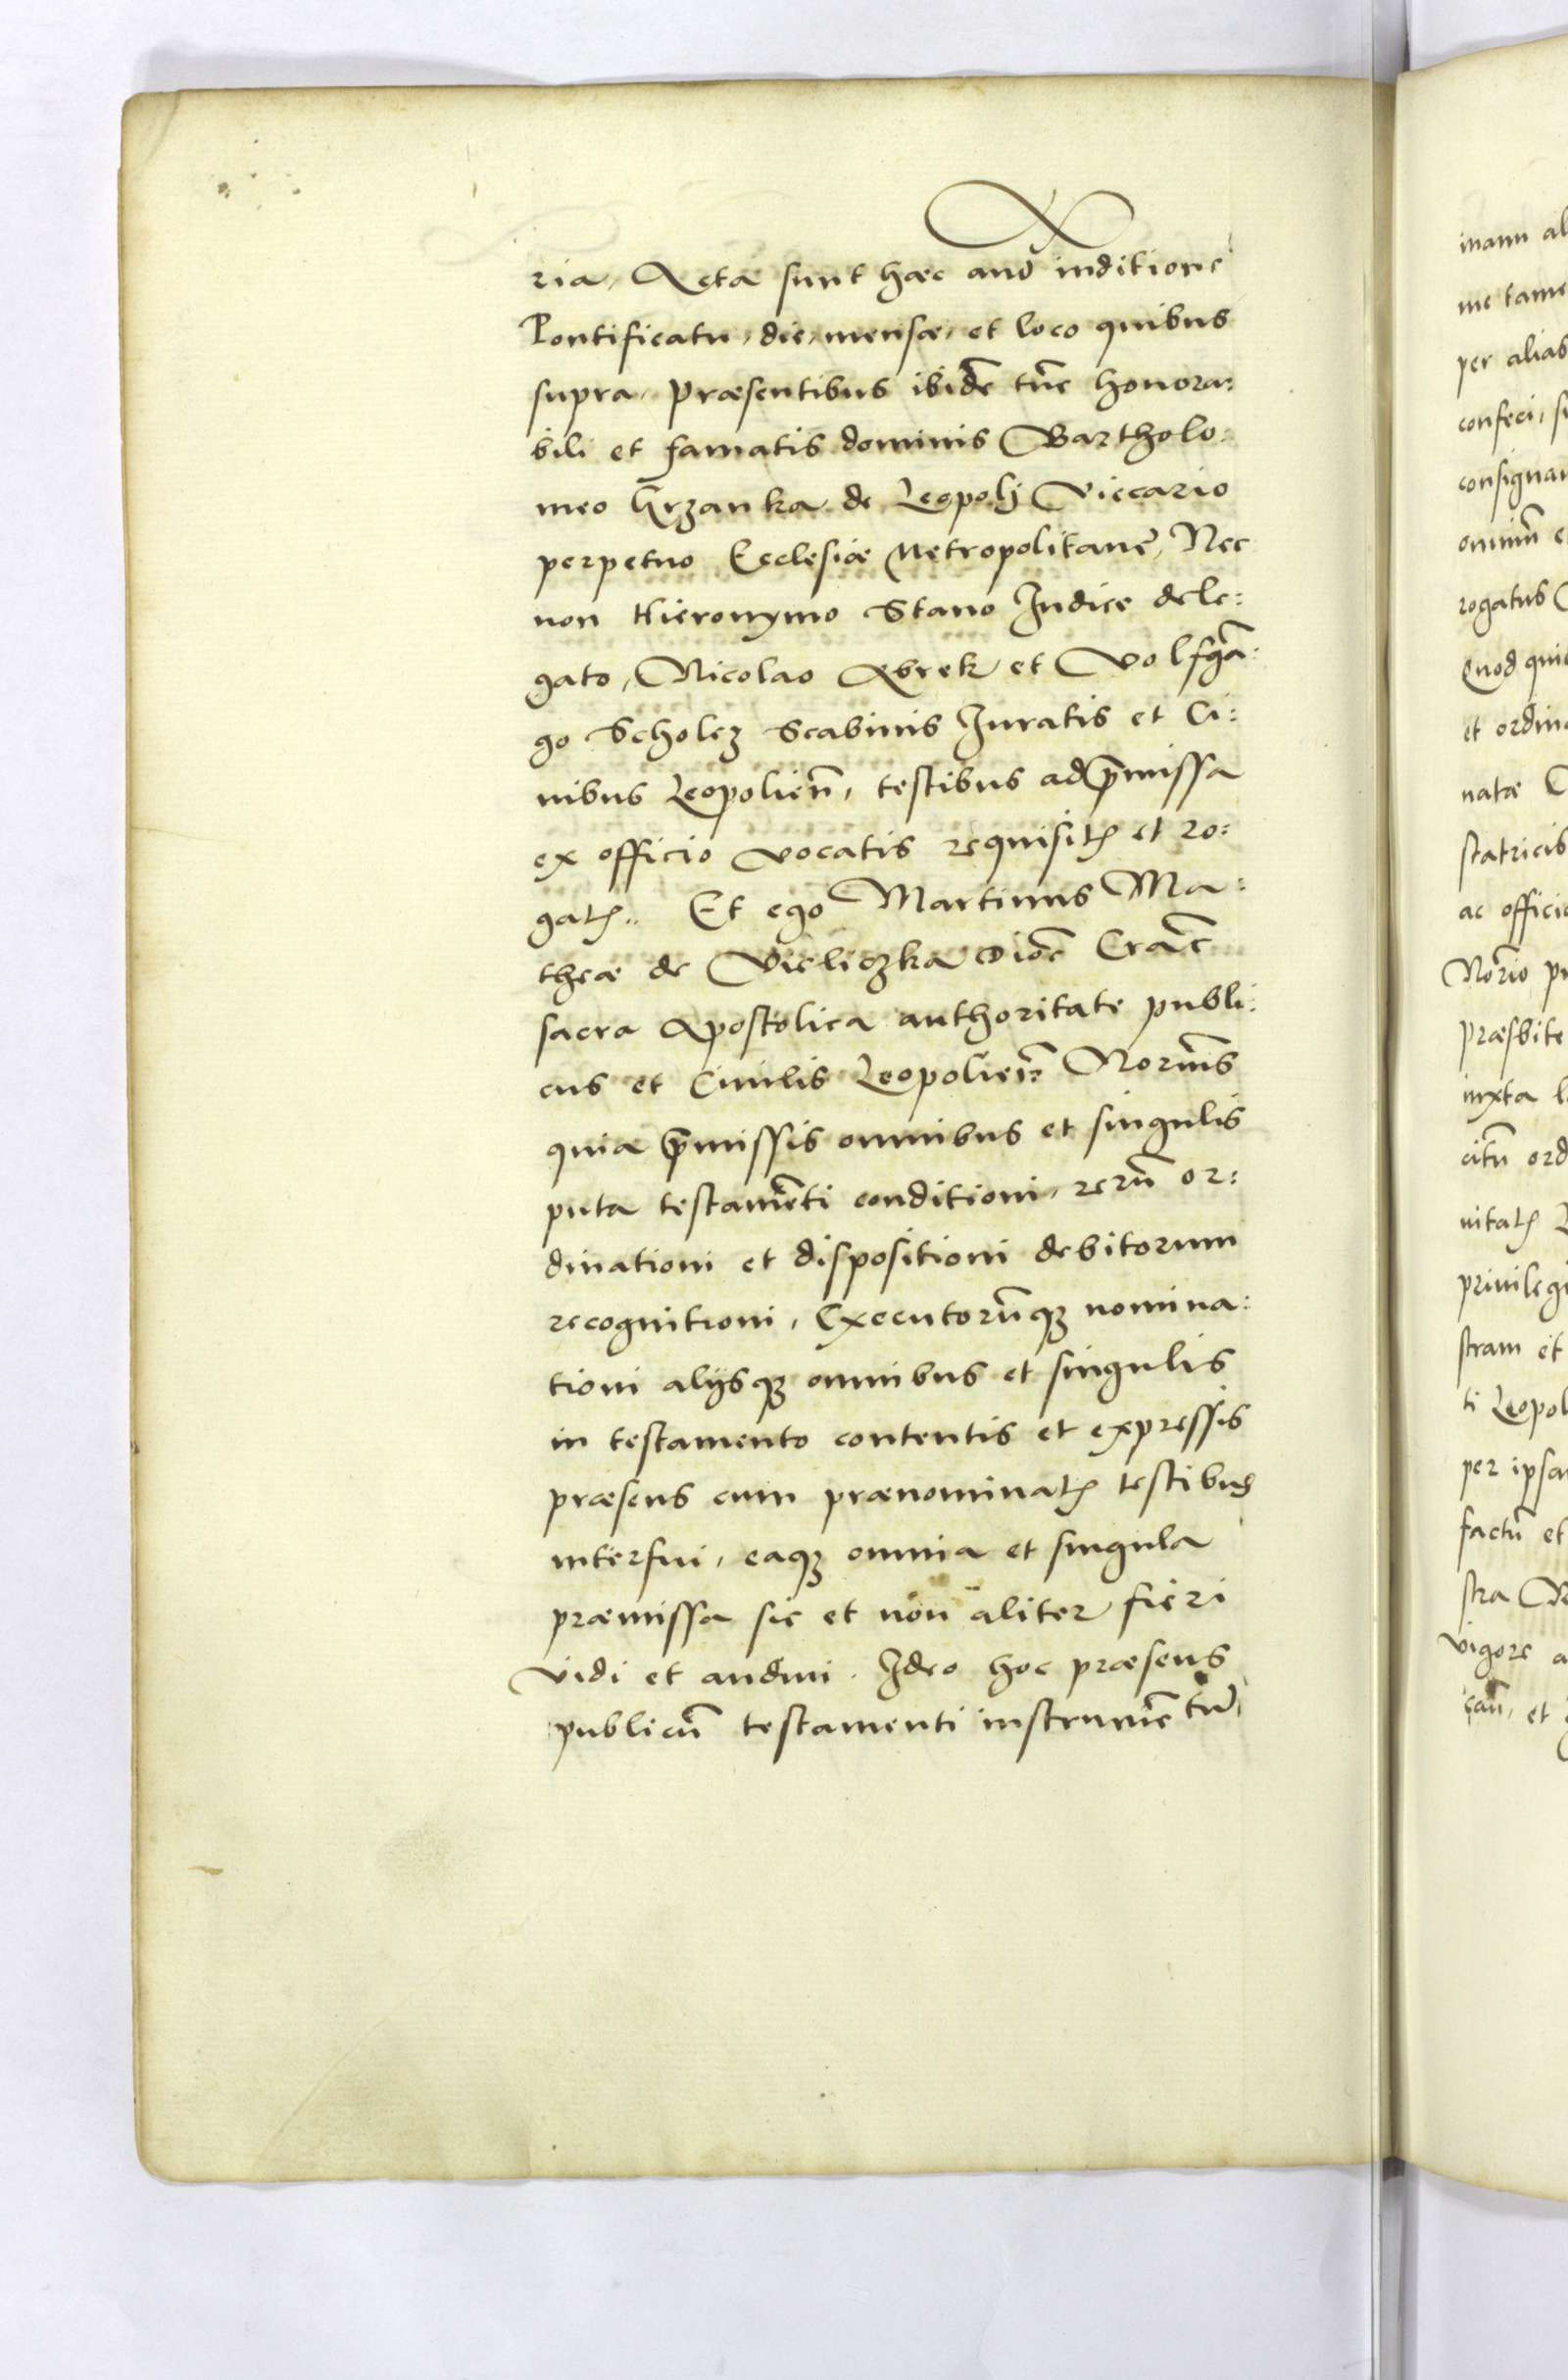 ria, Acta sunt hæc anō inditione
Pontificatu, die, mense, et loco quibus
supra, Præsentibus ibidē tūc honora:
bili et famatis dominis Bartholo:
meo Krzanka de Leopolj Viccario
perpetuo Ecclesiæ Metropolitanę, Nec
non Hieronymo Stano Iudice dele:
gato, Nicolao Abrek et Volfgā:
go Scholcz Scabinis Iuratis et Ci:
uibus Leopolieñ, testibus ad p̄missa
ex officio vocatis requisitꝭ et ro:
gatꝭ. Et ego Martinus Ma:
theæ de Vieliczka Dioc̄ Crac̄
sacra Apostolica authoritate publi:
cus et Ciuilis Leopolieñ Noriūs
quia p̄missis omnibus et singulis
puta testamēti conditioni, rerū or:
dinationi et dispositioni debitorum
recognitioni, Executorūqꝫ nomina:
tioni alijsqꝫ omnibus et singulis
in testamento contentis et expressis
præsens cum prænominatꝭ testibus
interfui, eaqꝫ omnia et singula
præmissa sic et non aliter fieri
vidi et audiui. Ideo hoc præsens
publicū testamenti instrumētū,
manu al
me tame
per alias
confeci, s
consignau
omniū e
rogatus
Quod qui
et ordina
natæ
statricis
ac offici
Norio pu
præsbite
iuxta l
citū ord
uitatꝭ
priuilegi
stram et
ti Leopol
per ipsa
factū et
stra
vigore a
et